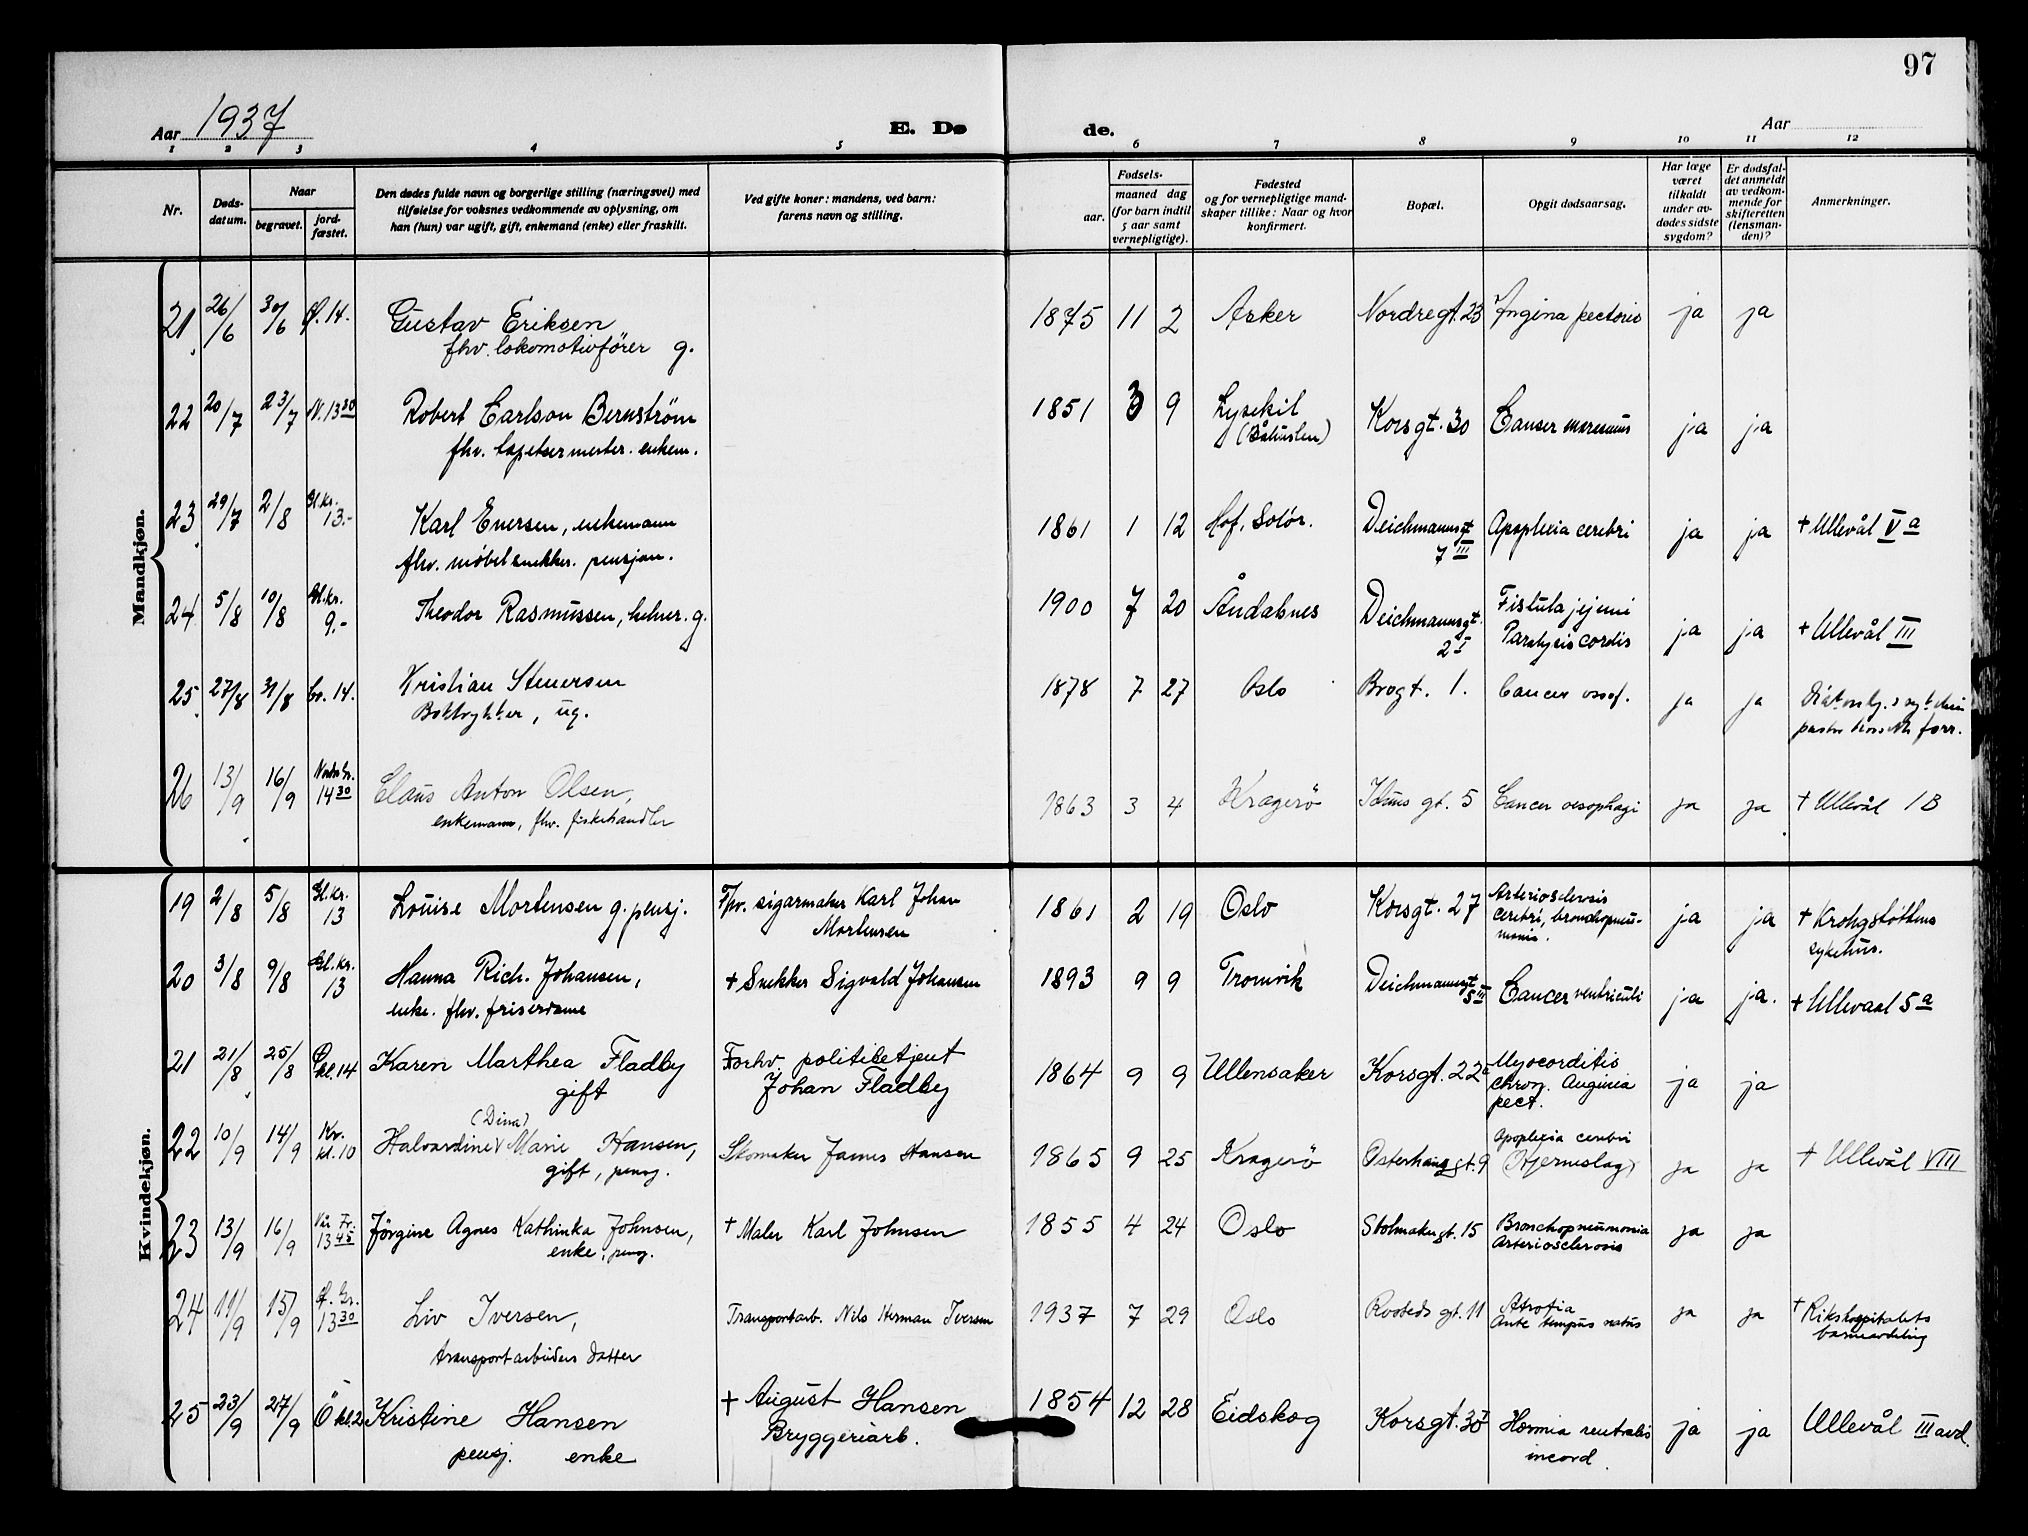 97
Aar 1937
E. Dø
de.
Aar
1 2 3 4 5 6 7 8 9 10 11 12
Nr.
Døds-
datum.
Naar
begravet.
jord-
fæstet.
Den dødes fulde navn og borgerlige stilling (næringsvei) med
tilføielse for voksnes vedkommende av oplysning, om
han (hun) var ugift, gift, enkemand (enke) eller fraskilt.
Ved gifte koner: mandens, ved barn:
farens navn og stilling.
Fødsels-
aar.
maaned dag
(for barn indtil
5 aar samt
vernepligtige).
Fødested
og for vernepligtige mand-
skaper tillike: Naar og hvor
konfirmert.
Bopæl.
Opgit dødsaarsag.
Har læge
været
tilkaldt
under av-
dødes sidste
sygdom?
Er dødsfal-
det anmeldt
av vedkom-
mende for
skifteretten
(lensman-
den)?
Anmerkninger.
Mandkjøn.
21 26/6 30/6 14. Gustav Eriksen 1875 11 2 Asker Nordregt. 23 Angina pectoris ja ja
fhv. lokomotivfører g.
22 20/7 23/7 N. 13 30 Robert Carlson Bernstrøm 1851 3 9 Lysekil Korsgt. 30 Canser ja ja
(Båhuslen)
fhv. tapetsermester. enkem.
23 29/7 2/8 Gl. Kr. 13.- Karl Enersen, enkemann 1861 1 12 Hof, Solør. Deichmannsgt 7 III Apoplexia cerebri ja ja + Ullevål V a
fhv. møbelsnekker. pensjon.
24 5/8 10/8 Gl. kr. 9.- Theodor Rasmussen, kelner. g. 1900 7 20 Åndalsnes Deichmannsgt. 2 I Fistula jejuni ja ja + Ullevål III
Paralysis cordis
25 27/8 31/8 14. Kristian Stenersen 1878 7 27 Oslo Brogt. 1. Cancer ja ja
Boktrykker, ug. forr.
26 13/9 16/9 14 30 Claus Anton Olsen, 1863 3 4 Kragerö gt. 5 Cancer oesophagi ja ja + Ullevål 1 B
enkemann, fhv. fiskehandler
Kvindekjøn.
19 2/8 5/8 Gl. Kr. 13 Louise Mortensen g. pensj. Fhv. sigarmaker Karl Johan 1861 2 19 Oslo Korsgt. 27 Arteriosclerosis ja ja + Krohgstøttens
Mortensen cerebri, bronchopneu-
monia. sykehus.
20 3/8 9/8 Gl. Kr. 13 Hanna Rich. Johansen, + Snekker Sigvald Johansen 1893 9 9 Tromvik Deichmannsgt 5 III Cancer ventriculi ja ja. + Ullevaal 5 a
enke. fhv. friserdame
21 21/8 25/8 kl. 14 Karen Marthea Fladby Forhv. politibetjent 1864 9 9 Ullensaker Korsgt. 22a Myocorditis ja ja
gift Johan Fladby chron. Anginia
pect.
22 10/9 14/9 Kr. kl. 10 Halvardine (Dina) Marie Hansen, Skomaker James Hansen 1865 9 25 Kragerö Osterhausgt. 9 Apoplexia cerebri ja ja + Ullevål VIII
gift, pensj. (Hjerneslag)
23 13/9 16/9 Vår Fr. 13 45 Jørgine Agnes Kathinka Johnsen, + Maler Karl Johnsen 1855 4 24 Oslo Stolmakergt. 15 Bronchopneumonia ja ja
enke, pensj. Arteriosclerosis
24 11/9 15/9 13 30 Liv Iversen, Transportarb. Nils Herman Iversen 1937 7 29 Oslo Rosteds gt. 11 Atrofia ja ja + Rikshospitalets
transportarbeiders datter Ante tempus natus barneavdeling
25 23/9 27/9 Ö kl. 2 Kristine Hansen + August Hansen 1854 12 28 Eidskog Korsgt. 30 I ja ja Ullevål III avd.
pensj. enke Bryggeriarb.